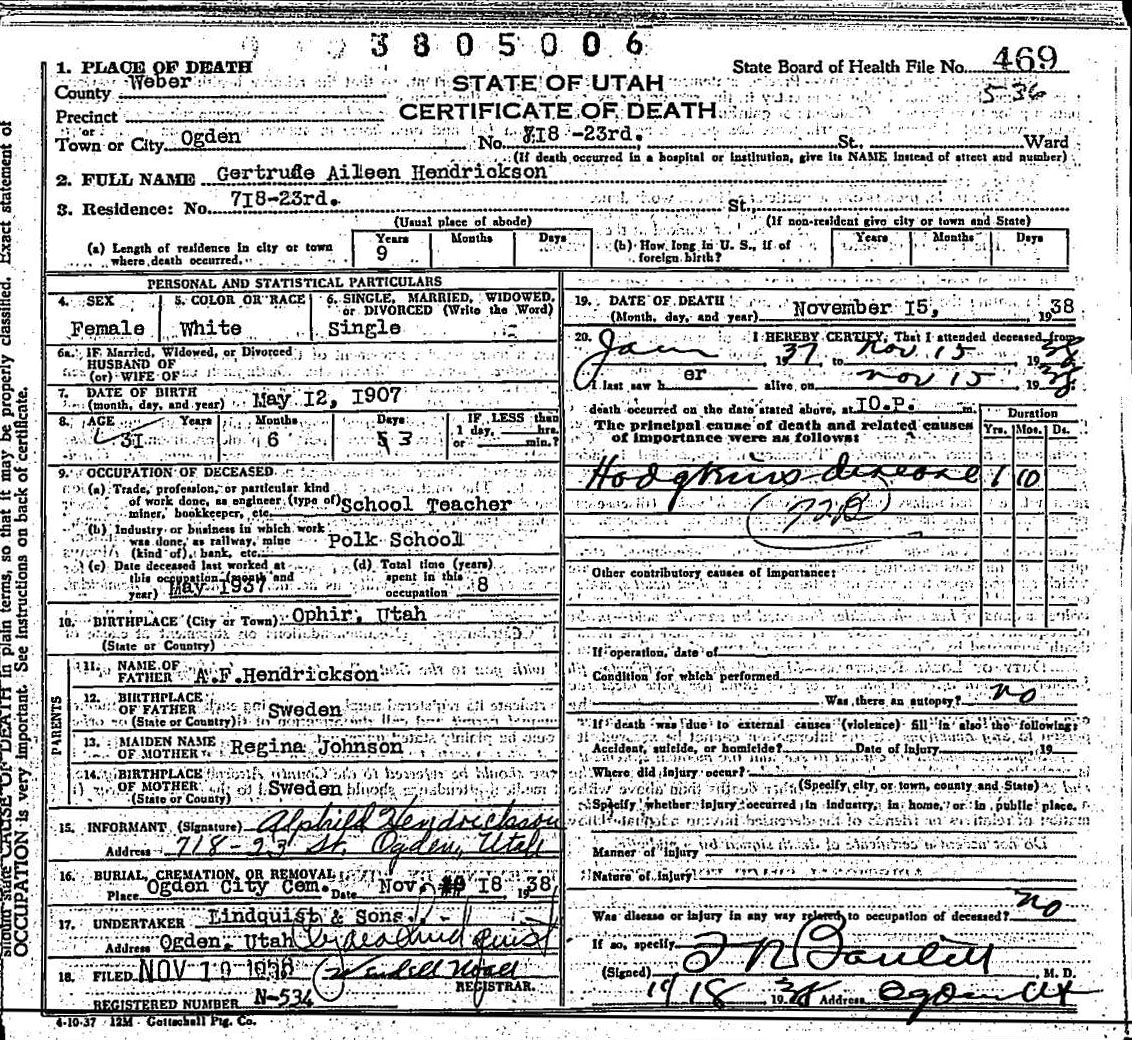 3805006
State Board of Health File No. 469
5-36
STATE OF UTAH
CERTIFICATE OF DEATH
1. PLACE OF DEATH
County Weber
Precinct
or
Town or City Ogden No. 718 -23rd. St., Ward
(If death occurred in a hospital or institution, give its NAME instead of street and number)
2. FULL NAME Gertrude Aileen Hendrickson
3. Residence: No. 718-23rd. St.,
(Usual place of abode) (If non-resident give city or town and State)
(a) Length of residence in city or town where death occurred. Years 9 Months Days
(b) How long in U. S., if of foreign birth? Years Months Days
PERSONAL AND STATISTICAL PARTICULARS
4. SEX Female
5. COLOR OR RACE White
6. SINGLE, MARRIED, WIDOWED, or DIVORCED (Write the Word) Single
6a. IF Married, Widowed, or Divorced
HUSBAND OF
(or) WIFE OF
7. DATE OF BIRTH
(month, day, and year) May 12, 1907
8. AGE Years 31 Months 6 Days 3 IF LESS than 1 day, hrs. or min.?
9. OCCUPATION OF DECEASED
(a) Trade, profession, or particular kind
of work done, as engineer (type of) School Teacher
miner, bookkeeper, etc.
(b) Industry or business in which work
was done, as railway, mine Polk School
(kind of), bank, etc.
(c) Date deceased last worked at
this occupation (month and
year) May 1937
(d) Total time (years)
spent in this
occupation 8
10. BIRTHPLACE (City or Town) Ophir, Utah
(State or Country)
PARENTS
11. NAME OF
FATHER A.F.Hendrickson
12. BIRTHPLACE
OF FATHER Sweden
(State or Country)
13. MAIDEN NAME
OF MOTHER Regina Johnson
14. BIRTHPLACE
OF MOTHER Sweden
(State or County)
15. INFORMANT (Signature) Alphild Hendrickson
Address 718-23 St. Ogden, Utah
16. BURIAL, CREMATION, OR REMOVAL
Place Ogden City Cem. Date Nov. 18 1938,
17. UNDERTAKER Lindquist & Sons.
Address Ogden, Utah
18. FILED NOV 19 1938
REGISTRAR.
REGISTERED NUMBER N-534
4-10-37 12M - Gottschall Ptg. Co.
19. DATE OF DEATH
(Month, day, and year) November 15, 1938
20. I HEREBY CERTIFY, That I attended deceased from
Jan 1937 to Nov 15 1938
I last saw h er alive on Nov 15 1938
death occurred on the date stated above, at 10.P. m.
The principal cause of death and related causes
of importance were as follows:
Duration
Yrs. Mos. Ds.
Hodgkins disease 1 10
(72B)
Other contributory causes of importance:
If operation, date of
Condition for which performed
Was there an autopsy? no
If death was due to external causes (violence) fill in also the following:
Accident, suicide, or homicide? Date of injury 19
Where did injury occur?
(Specify city or town, county and State)
Specify whether injury occurred in industry, in home, or in public place.
Manner of injury
Nature of injury
Was disease or injury in any way related to occupation of deceased? no
If so, specify
(Signed) M. D.
11/18 1938 Address Ogden Ut
should state CAUSE OF DEATH in plain terms, so that it may be properly classified. Exact statement of
OCCUPATION is very important. See instructions on back of certificate.